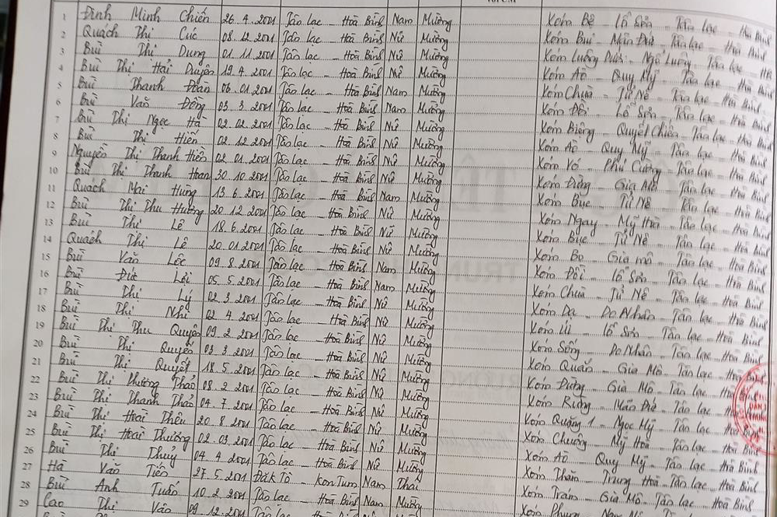 1 Đinh Minh Chiến 26.4.2001 Tân Lạc - Hoà Bình Nam Mường Xóm Bệ - Lỗ Sơn - Tân Lạc - Hoà Bình
2 Quách Thị Cúc 08.12.2001 Tân Lạc - Hoà Bình Nữ Mường Xóm Bui - Mãn Đức - Tân Lạc - Hoà Bình
3 Bùi Thị Dung 01.11.2001 Tân Lạc - Hoà Bình Nữ Mường Xóm Luông - Ngổ Luông - Tân Lạc - Hoà Bình
4 Bùi Thị Hải Duyên 19.4.2001 Tân Lạc - Hoà Bình Nữ Mường Xóm Áo - Quy Mỹ - Tân Lạc - Hoà Bình
5 Bùi Thanh 06.01.2001 Tân Lạc - Hoà Bình Nam Mường Xóm Chùa - Tử Nê - Tân Lạc - Hoà Bình
6 Bùi Văn Đồng 03.3.2001 Tân Lạc - Hoà Bình Nam Mường Xóm Đồi - Lỗ Sơn - Tân Lạc - Hoà Bình
7 Bùi Thị Ngọc Hà 02.02.2001 Tân Lạc - Hoà Bình Nữ Mường Xóm - Quyết Chiến - Tân Lạc - Hoà Bình
8 Bùi Thị Hiền 02.12.2001 Tân Lạc - Hoà Bình Nữ Mường Xóm Áo - Quy Mỹ - Tân Lạc - Hoà Bình
9 Nguyễn Thị Thanh Hiền 02.01.2001 Tân Lạc - Hoà Bình Nữ Mường Xóm Vó - Phú Cường - Tân Lạc - Hoà Bình
10 Bùi Thị Thanh Hoan 30.10.2001 Tân Lạc - Hoà Bình Nữ Mường Xóm Đừng - Gia Mô - Tân Lạc - Hoà Bình
11 Quách Mai Hưng 13.6.2001 Tân Lạc - Hoà Bình Nam Mường Xóm Bục - Tử Nê - Tân Lạc - Hoà Bình
12 Bùi Thị Thu Hường 20.12.2001 Tân Lạc - Hoà Bình Nữ Mường Xóm Ngay - Mỹ Hoà - Tân Lạc - Hoà Bình
13 Bùi Thị Lê 18.6.2001 Tân Lạc - Hoà Bình Nữ Mường Xóm Bục - Tử Nê - Tân Lạc - Hoà Bình
14 Quách Thị Lê 20.01.2001 Tân Lạc - Hoà Bình Nữ Mường Xóm Bo - Gia Mô - Tân Lạc - Hoà Bình
15 Bùi Văn Lộc 09.8.2001 Tân Lạc - Hoà Bình Nam Mường Xóm Đồi - Lỗ Sơn - Tân Lạc - Hoà Bình
16 Bùi Đức Lợi 05.5.2001 Tân Lạc - Hoà Bình Nam Mường Xóm Chùa - Tử Nê - Tân Lạc - Hoà Bình
17 Bùi Thị Lý 02.3.2001 Tân Lạc - Hoà Bình Nữ Mường Xóm Da - Do Nhân - Tân Lạc - Hoà Bình
18 Bùi Thị Nhi 02.4.2001 Tân Lạc - Hoà Bình Nữ Mường Xóm - Lỗ Sơn - Tân Lạc - Hoà Bình
19 Bùi Thị Thu Quyên 09.2.2001 Tân Lạc - Hoà Bình Nữ Mường Xóm Sống - Do Nhân - Tân Lạc - Hoà Bình
20 Bùi Thị Quyến 03.3.2001 Tân Lạc - Hoà Bình Nữ Mường Xóm Quán - Gia Mô - Tân Lạc - Hoà Bình
21 Bùi Thị Quyết 18.5.2001 Tân Lạc - Hoà Bình Nữ Mường Xóm Đừng - Gia Mô - Tân Lạc - Hoà Bình
22 Bùi Thị Phương Thảo 08.2.2001 Tân Lạc - Hoà Bình Nữ Mường Xóm - Mãn Đức - Tân Lạc - Hoà Bình
23 Bùi Thị Thanh Thảo 04.7.2001 Tân Lạc - Hoà Bình Nữ Mường Xóm 1 - Ngọc Mỹ - Tân Lạc - Hoà Bình
24 Bùi Thị Hoài Thêu 20.8.2001 Tân Lạc - Hoà Bình Nữ Mường Xóm Chuông - Mỹ Hoà - Tân Lạc - Hoà Bình
25 Bùi Thị Hoài Thương 02.03.2001 Tân Lạc - Hoà Bình Nữ Mường Xóm Áo - Quy Mỹ - Tân Lạc - Hoà Bình
26 Bùi Thị Thuý 04.4.2001 Tân Lạc - Hoà Bình Nữ Mường Xóm Thăm - Trung Hoà - Tân Lạc - Hoà Bình
27 Hà Văn Tiến 27.5.2001 Đăk Tô - Kon Tum Nam Thái Xóm Trám - Gia Mô - Tân Lạc - Hoà Bình
28 Bùi Anh Tuấn 10.2.2001 Tân Lạc - Hoà Bình Nam Mường Xóm
29 Cao Thị Vân 09.12.2001 Tân Lạc - Hoà Bình